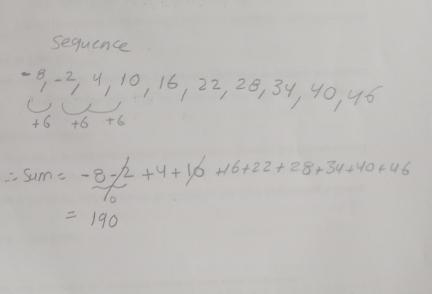 Sequence
-8, -2, 4, 10, 16, 22, 28, 34, 40, 46
+6 +6 +6
∴ Sum = -8-2 +4+10 +16+22+28+34+40+46
= 190